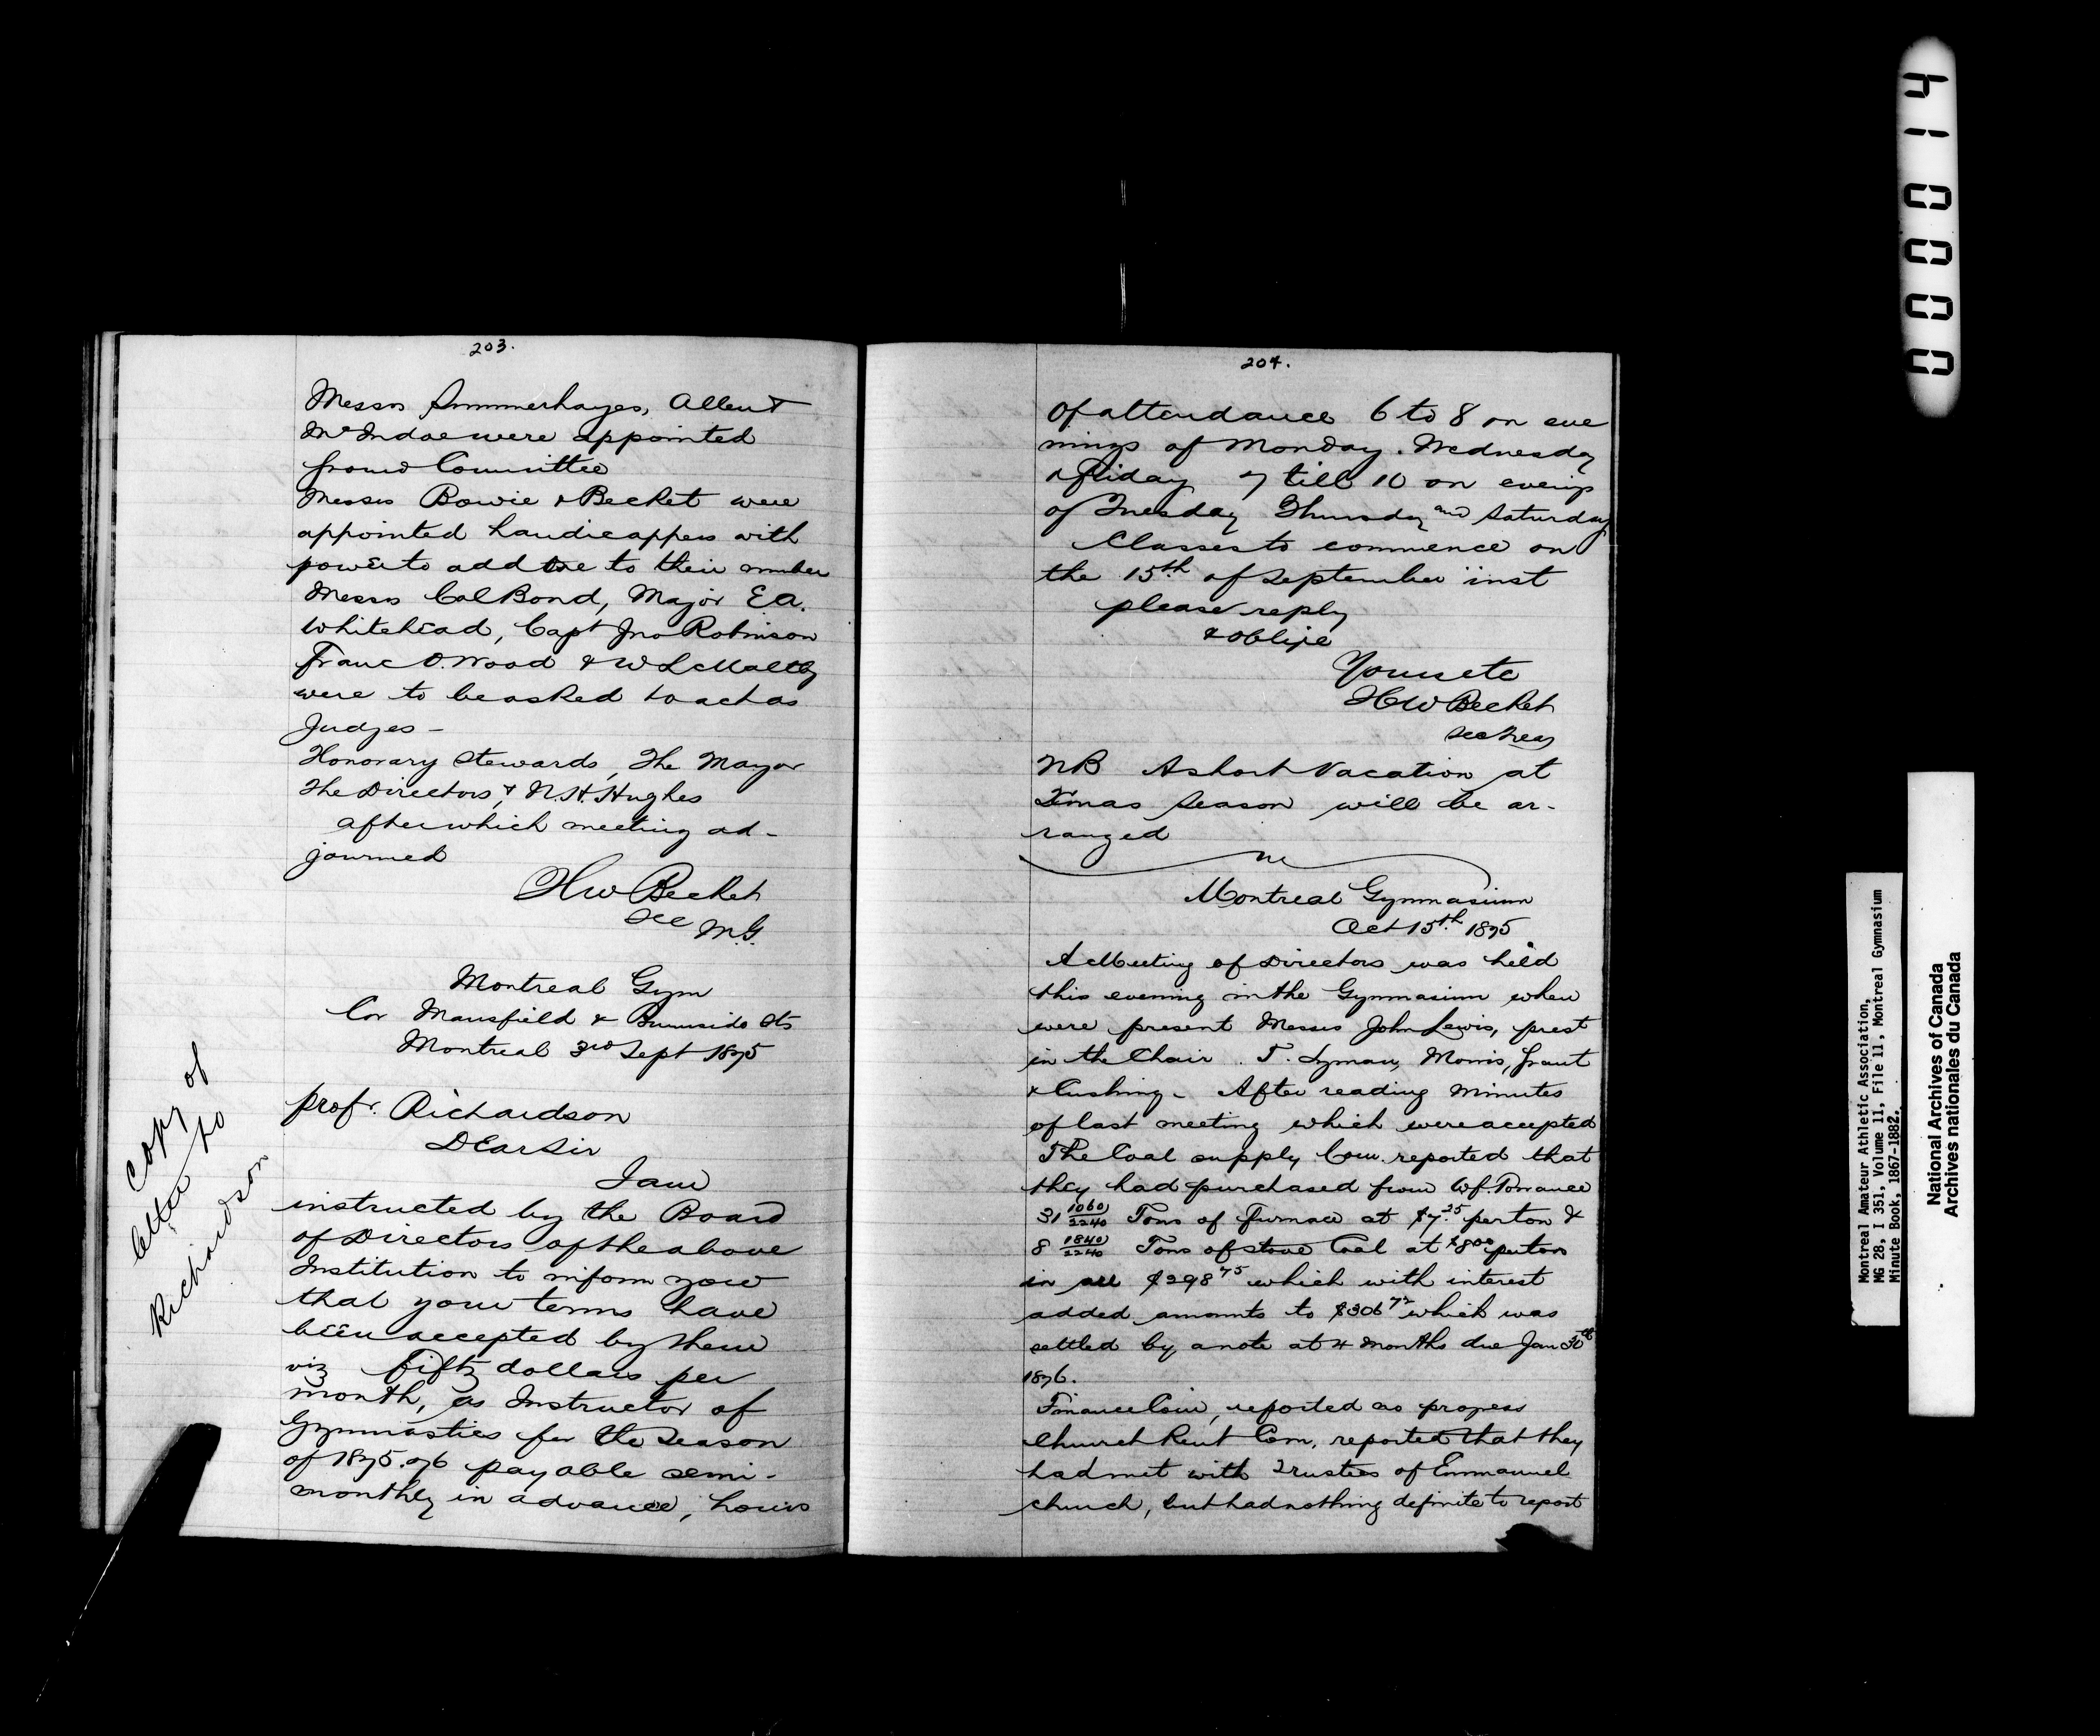 203.
Messrs Summerhayes, Allen &
McIndoe were appointed
ground Committee
Messrs Bowie & Becket were
appointed handicappers with
power to add one to their number
Messrs Col Bond, Major E.A.
Whitehead, Capt Jno Robinson
Franc O. Wood & W L Maltby
were to be asked to act as
Judges -
Honorary Stewards, The Mayor
The Directors, & N. H. Hughes
after which meeting ad-
journed
H W Becket
Sec
M.G.
Montreal Gym
Cor Mansfield & Burnside Sts
Montreal 3rd Sept 1875
copy of
letter to
Richardson
prof. Richardson
Dear Sir
I am
instructed by the Board
of Directors of the above
Institution to inform you
that your terms have
been accepted by them
viz fifty dollars per
month, as Instructor of
Gymnastics for the Season
of 1875.76 payable semi-
monthly in advance, hours
204.
of attendance 6 to 8 on eve
nings of Monday. Wednesday
& Friday 7 till 10 on evenings
of Tuesday Thursday and Saturday
Classes to commence on
the 15th of September inst
please reply
& oblige
Yours etc
H W Becket
Sec Treas
NB A short Vacation at
Xmas Season will be ar-
ranged
Montreal Gymnasium
Oct 15th 1875
A Meeting of Directors was held
this evening in the Gymnasium when
were present Messrs John Lewis, prest
in the Chair. T. Lyman, Morris, Grant
& Cushing - After reading minutes
of last meeting which were accepted
The Coal supply Com. reported that
they had purchased from W f. Torrance
31 1060/2240 Tons of furnace at $7.25 per ton &
8 1840/2240 Tons of stove Coal at $8 00 per ton
in all $298 75 which with interest
added amounts to $306 72 which was
settled by a note at 4 months due Jan 30th
1876.
Finance Com, reported no progress
Church Rent Com, reported that they
had met with Trustees of Emmanuel
church, but had nothing definite to report
41 0000
Montreal Amateur Athletic Association,
MG 28, I 351, Volume 11, File 11, Montreal Gymnasium
Minute Book, 1867-1882.
National Archives of Canada
Archives nationales du Canada